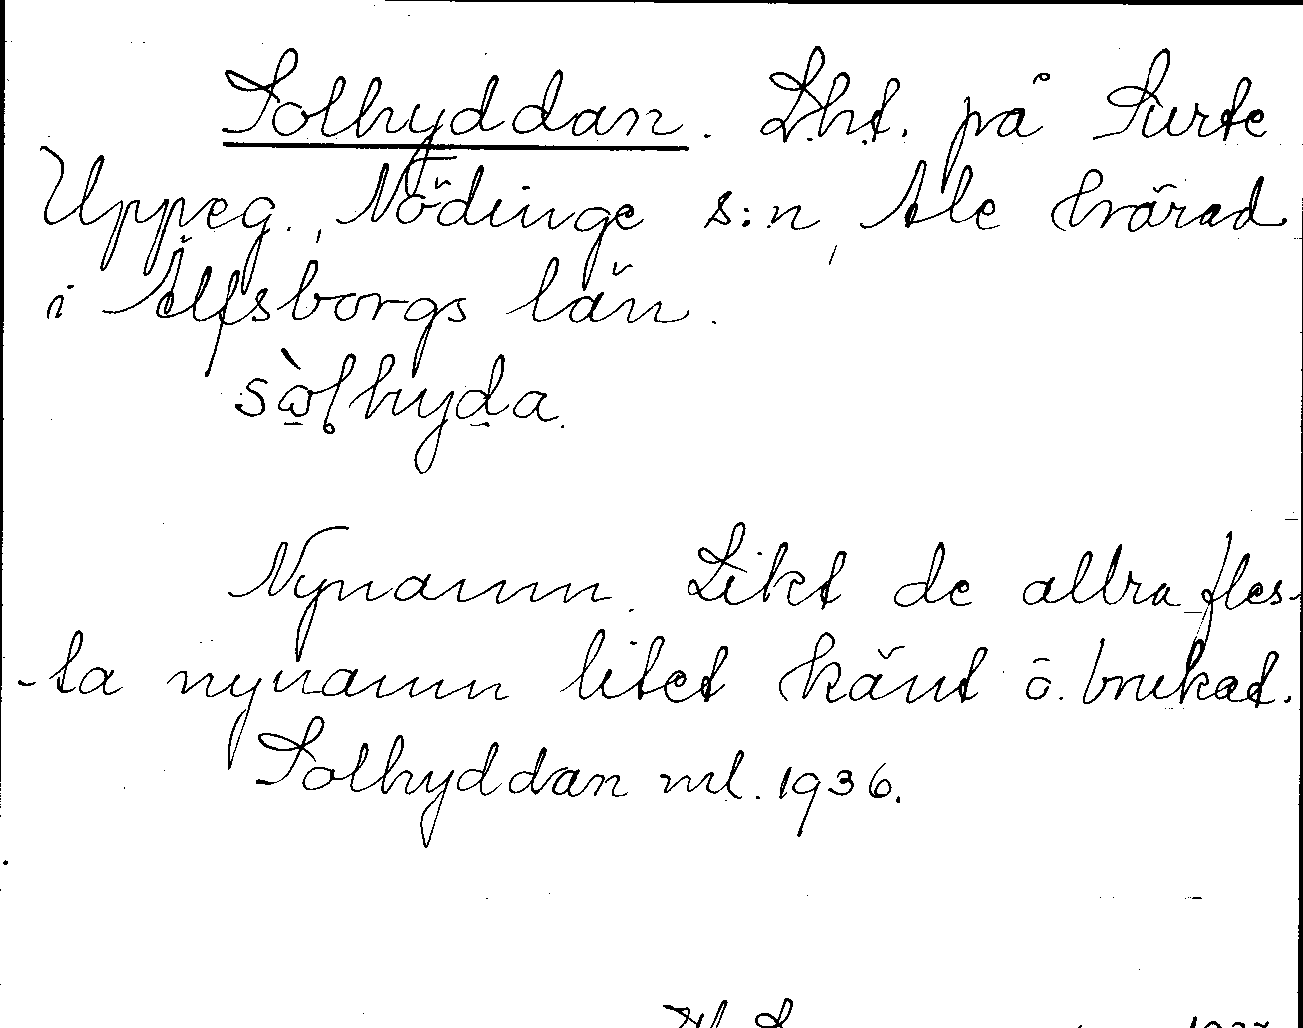 Solhyddan. Lht. på Surte
Uppeg., Nödinge s:n, Ale härad
i Älfsborgs län.
Nynamn. Likt de allra fles-
-ta nynamn litet känt o. brukat.
Solhyddan ml. 1936.